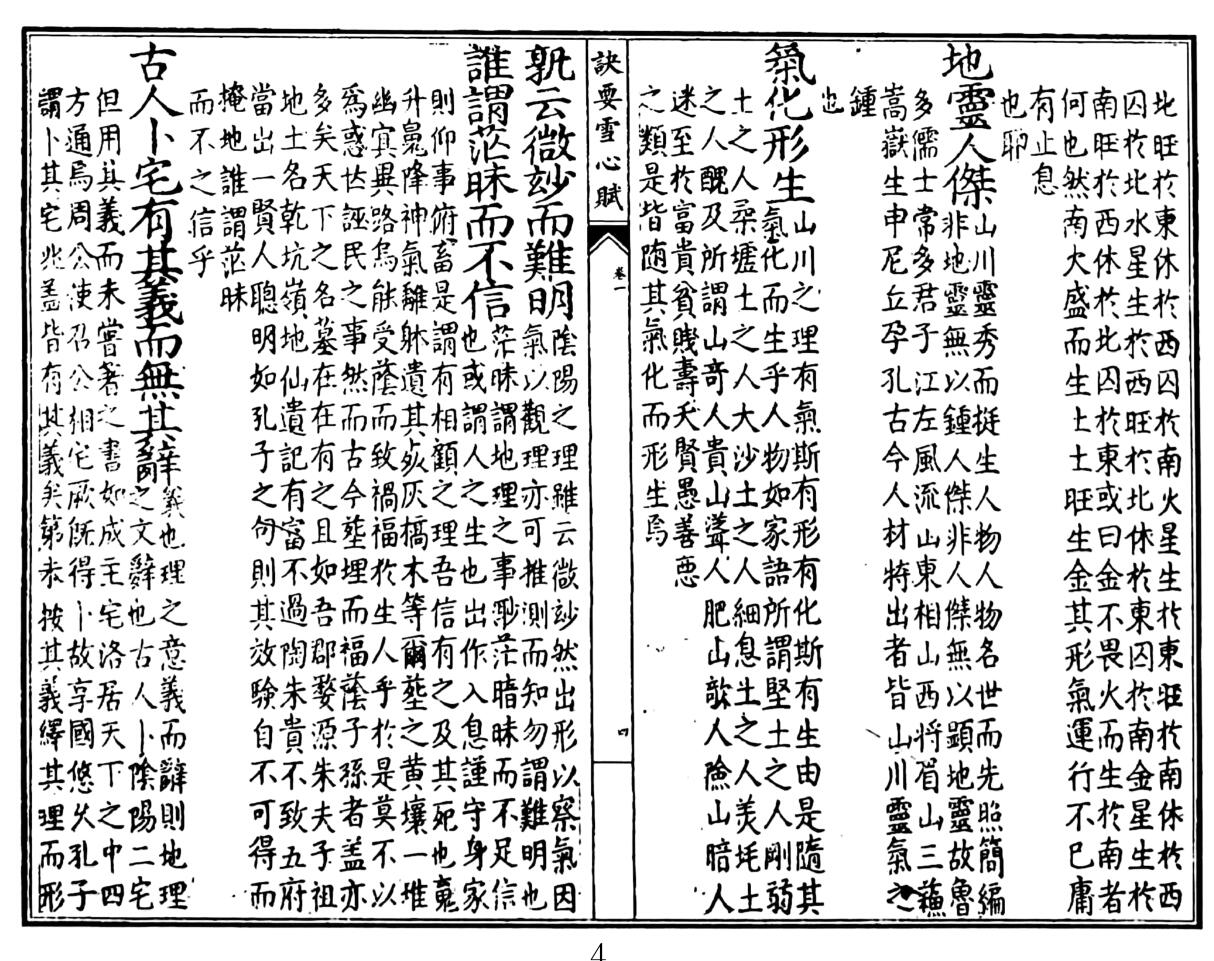 北旺於東休於西囚於南火星生於東旺於南休於西
囚於北水星生於西旺於北休於東囚於南金星生於
南旺於西休於北囚於東或曰金不畏火而生於南者
何也然南火盛而生土土旺生金其形氣運行不已庸
有止息
也耶
地靈人傑山川靈秀而挺生人物人物名世而先照簡編
非地靈無以鍾人傑非人傑無以顕地靈故魯
多儒士常多君子江左風流山東相山西將眉山三蘓
嵩嶽生申尼丘孕孔古今人材特出者皆山川靈氣之
鍾
也
氣化形生山川之理有氣斯有形有化斯有生由是隨其
氣化而生乎人物如家語所謂堅土之人剛弱
土之人柔壚土之人大沙土之人細息土之人美耗土
之人醜及所謂山奇人貴山聳人肥山欹人險山暗人
迷至於富貴貧賤壽夭賢愚善惡
之類是皆随其氣化而形生焉
訣要雪心賦
卷一
四
孰云微玅而難明陰陽之理雖云微玅然出形以察氣因
氣以觀理亦可推測而知勿謂難明也
誰謂茫昧而不信茫昧謂地理之事渺茫暗昧而不足信
也或謂人之生也出作入息謹守身家
則仰事俯畜是謂有相顧之理吾信有之及其死也䰟
升鬼降神氣離躰遺其死灰槁木等爾塟之黄壤一堆
幽冥異路烏能受蔭而致禍福於生人乎於是莫不以
爲惑世誣民之事然而古今塟埋而福蔭子孫者盖亦
多矣天下之名墓在在有之且如吾郡婺源朱夫子祖
地土名乾坑嶺地仙遺記有富不過陶朱貴不致五府
當出一賢人聰明如孔子之句則其放驗自不可得而
掩地誰謂茫昧
而不之信乎
古人卜宅有其義而無其辭義也理之意義而辭則地理
之文辭也古人卜陰陽二宅
但用其義而未嘗著之書如成王宅洛居天下之中四
方通焉周公使召公相宅厥既得卜故享國悠久孔子
謂卜其宅兆盖皆有其義矣第未按其義繹其理而形
4